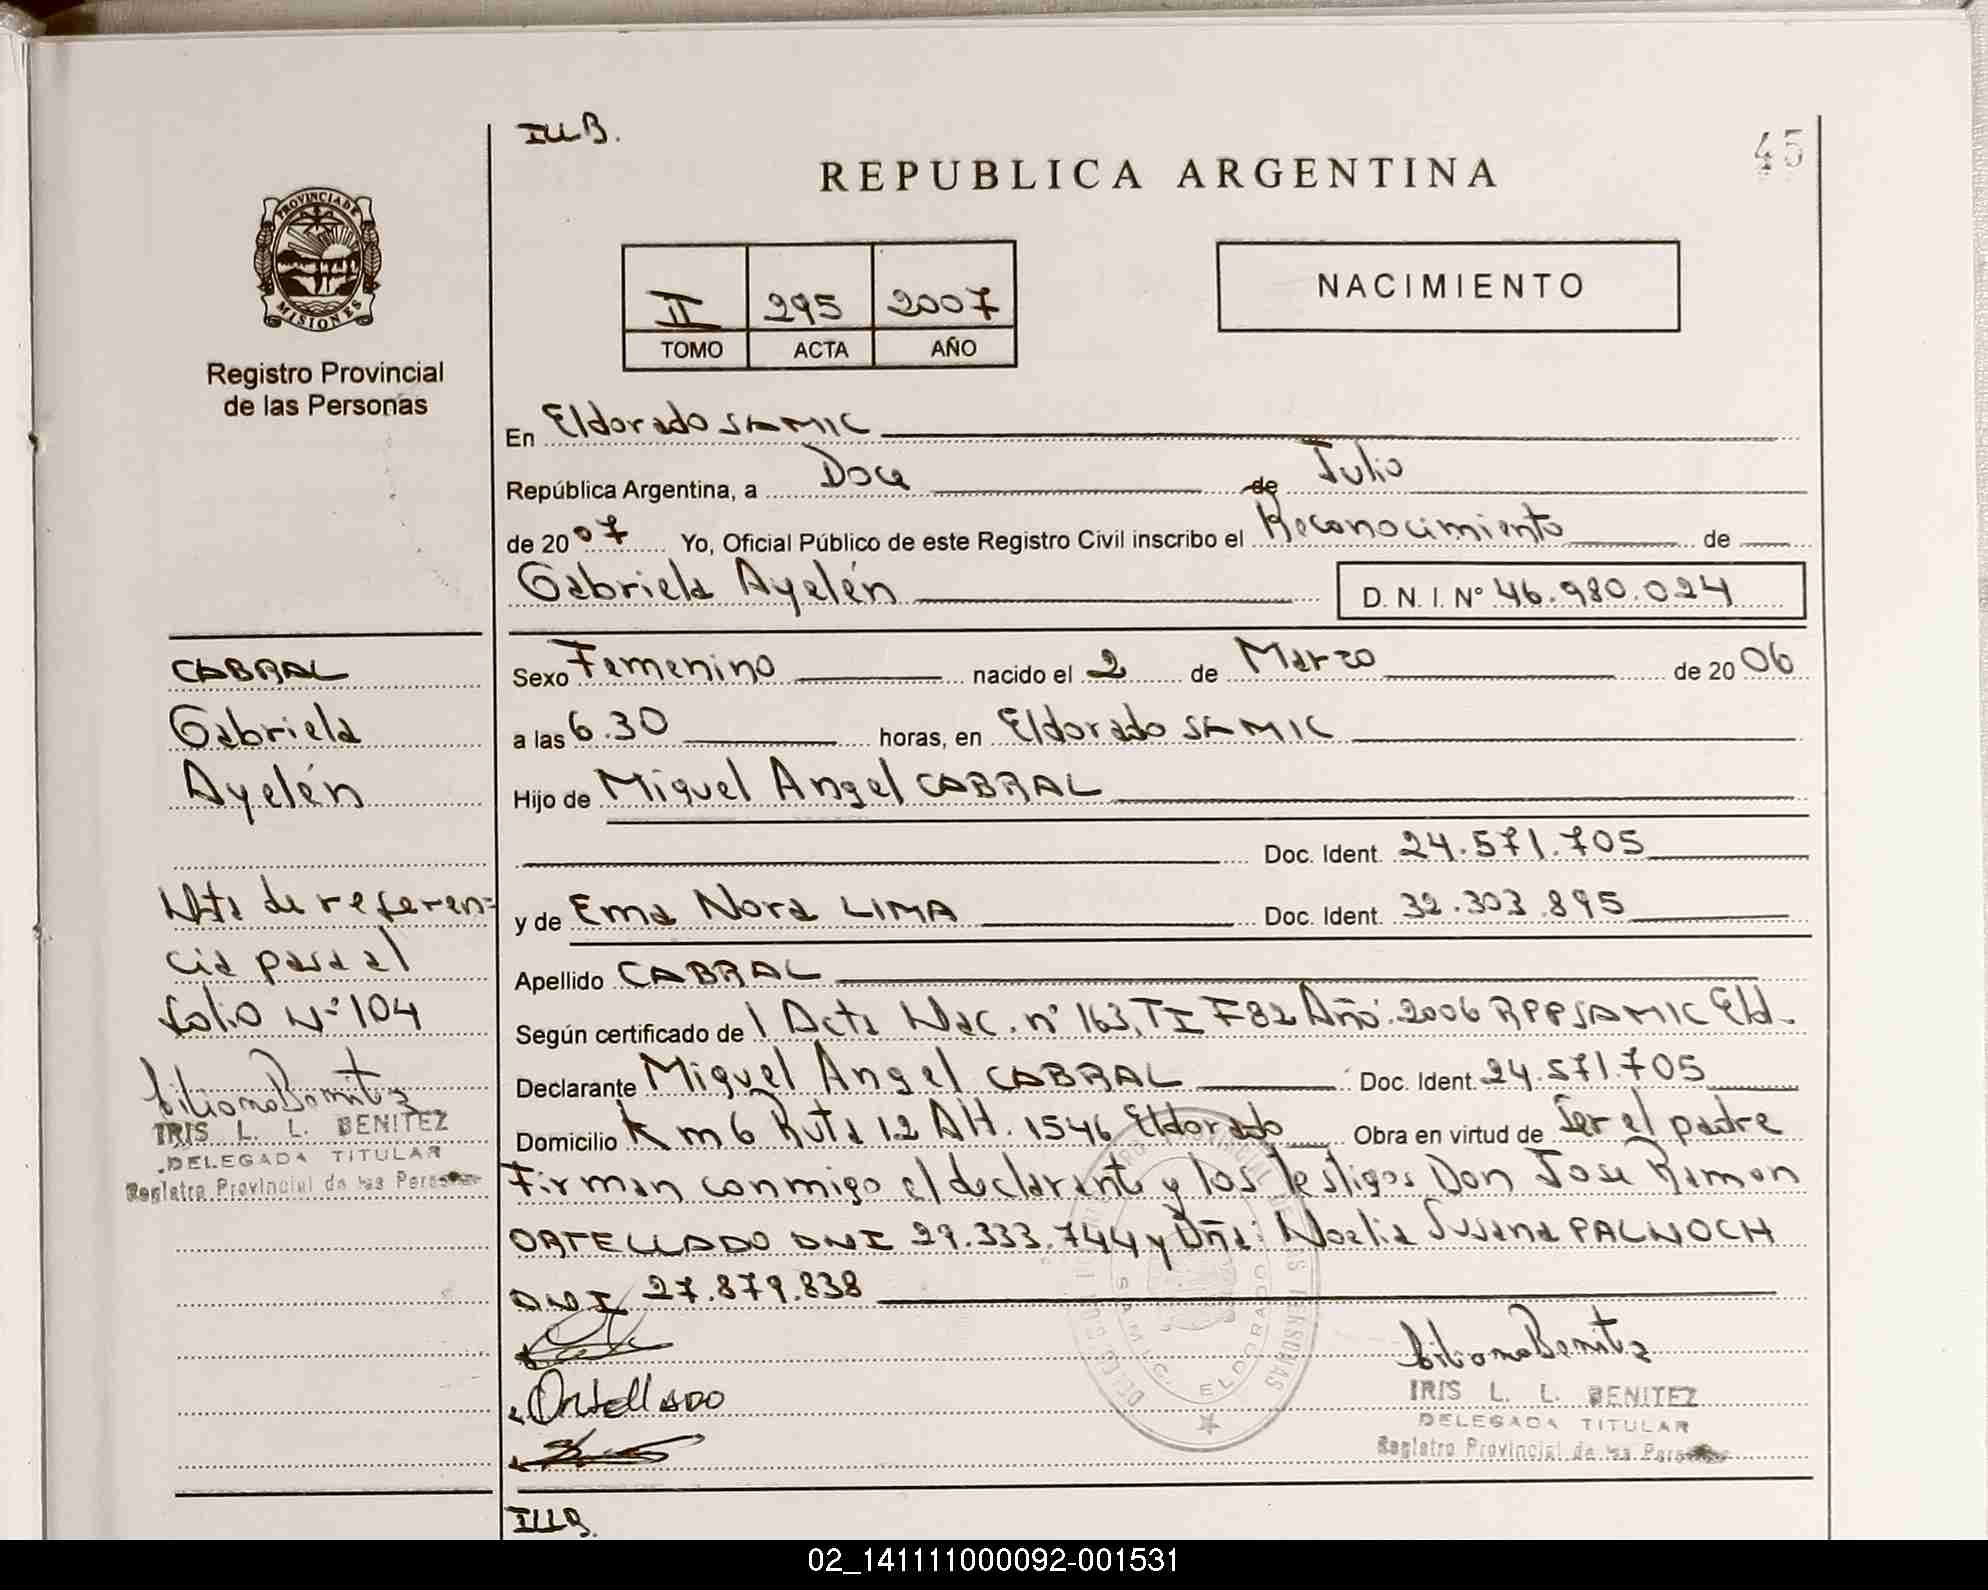 ILLB.
45
REPUBLICA ARGENTINA
PROVINCIA DE
MISIONES
Registro Provincial
de las Personas
II 295 2007
TOMO ACTA AÑO
NACIMIENTO
En Eldorado SAMIC
República Argentina, a Doce de Julio
de 2007 Yo, Oficial Público de este Registro Civil inscribo el Reconocimiento de
Gabriela Ayelén D. N. I. N° 46.980.024
CABRAL
Gabriela
Ayelén
Nota de referen=
cia para el
folio N° 104
IRIS L. L. BENITEZ
DELEGADA TITULAR
Registro Provincial de las Personas
Sexo Femenino nacido el 2 de Marzo de 2006
a las 6.30 horas, en Eldorado SAMIC
Hijo de Miguel Angel CABRAL
Doc. Ident. 24.571.705
y de Ema Nora LIMA Doc. Ident. 32.303.895
Apellido CABRAL
Según certificado de Acta Nac. n° 163, TI F82 Año: 2006 RPPSAMIC Eld.
Declarante Miguel Angel CABRAL Doc. Ident. 24.571.705
Domicilio Km 6 Ruta 12 Alt. 1546 Eldorado Obra en virtud de Ser el padre
Firman conmigo el declarante y los testigos Don Jose Ramon
ORTELLADO DNI 29.333.744 y Dña: Noelia Susana PALNOCH
DNI 27.879.838
Ortellado
SAMIC. ELDORADO
IRIS L. L. BENITEZ
DELEGADA TITULAR
Registro Provincial de las Personas
ILLB.
02_141111000092-001531